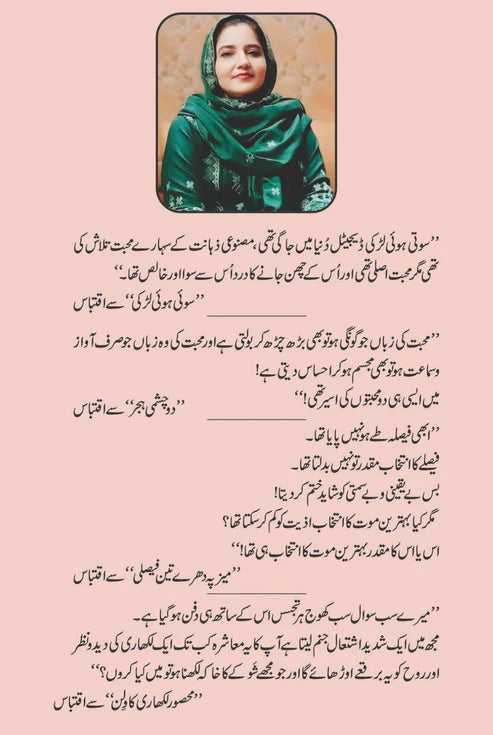 ”سوتی ہوئی لڑکی ڈیجیٹل دُنیا میں جاگی تھی، مصنوعی ذہانت کے سہارے محبت تلاش کی
تھی مگر محبت اصلی تھی اور اُس کے چھن جانے کا درد اُس سے سوا اور خالص تھا۔“
”سوئی ہوئی لڑکی“ سے اقتباس
”محبت کی زباں جو گونگی ہو تو بھی بڑھ چڑھ کر بولتی ہے اور محبت کی وہ زباں جو صرف آواز
و سماعت ہو تو بھی مجسم ہو کر احساس دیتی ہے!
میں ایسی ہی دو محبتوں کی اسیر تھی!“
”دو چشمی ہجر“ سے اقتباس
”ابھی فیصلہ طے ہو نہیں پایا تھا۔
فیصلے کا انتخاب مقدر تو نہیں بدلتا تھا۔
بس بے یقینی و بے سمتی کو شاید ختم کر دیتا!
مگر کیا بہترین موت کا انتخاب اذیت کو کم کر سکتا تھا؟
اس یا اس کا مقدر بہترین موت کا انتخاب ہی تھا!“
”میز پہ دھرے تین فیصلے“ سے اقتباس
”میرے سب سوال سب کھوج ہر تجسس اس کے ساتھ ہی دفن ہو گیا ہے۔
مجھ میں ایک شدید اشتعال جنم لیتا ہے آپ کا یہ معاشرہ کب تک ایک لکھاری کی دید و نظر
اور روح کو یہ برقعے اوڑھائے گا اور جو مجھے شو کے کا خاکہ لکھنا ہو تو میں کیا کروں؟“
”محصور لکھاری کا وِلن“ سے اقتباس